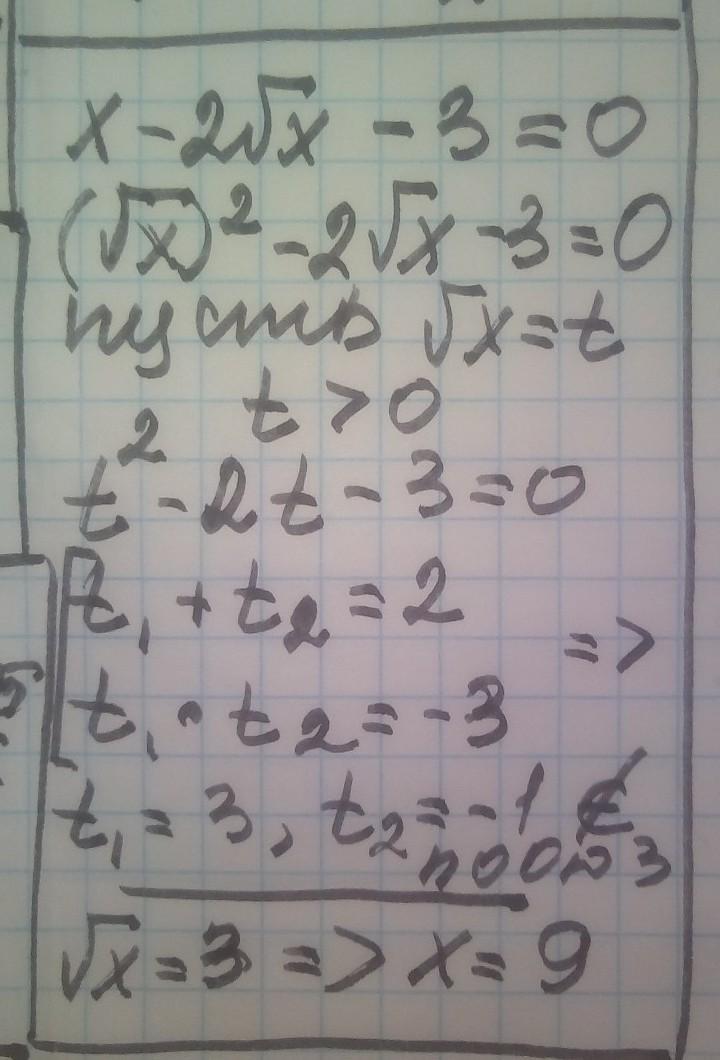 x - 2√x - 3 = 0
(√x)² - 2√x - 3 = 0
пусть √x = t
t > 0
t² - 2t - 3 = 0
[t₁ + t₂ = 2
t₁ · t₂ = -3 =>
t₁ = 3, t₂ = -1 ∉
по ОДЗ
√x = 3 => x = 9